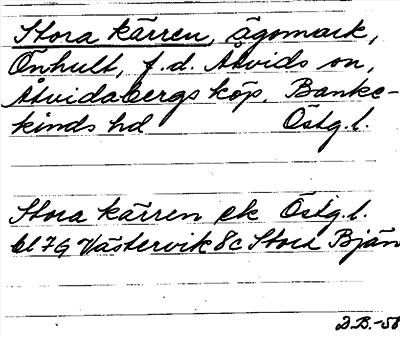 Stora kärren, ägomark,
Önhult, f.d. Åtvids sn,
Åtvidabergs köp. Banke-
kinds hd Östg.l.
Stora kärren ek Östg.l.
bl 79 Västervik 8c Stora Bjän
D.B.-58